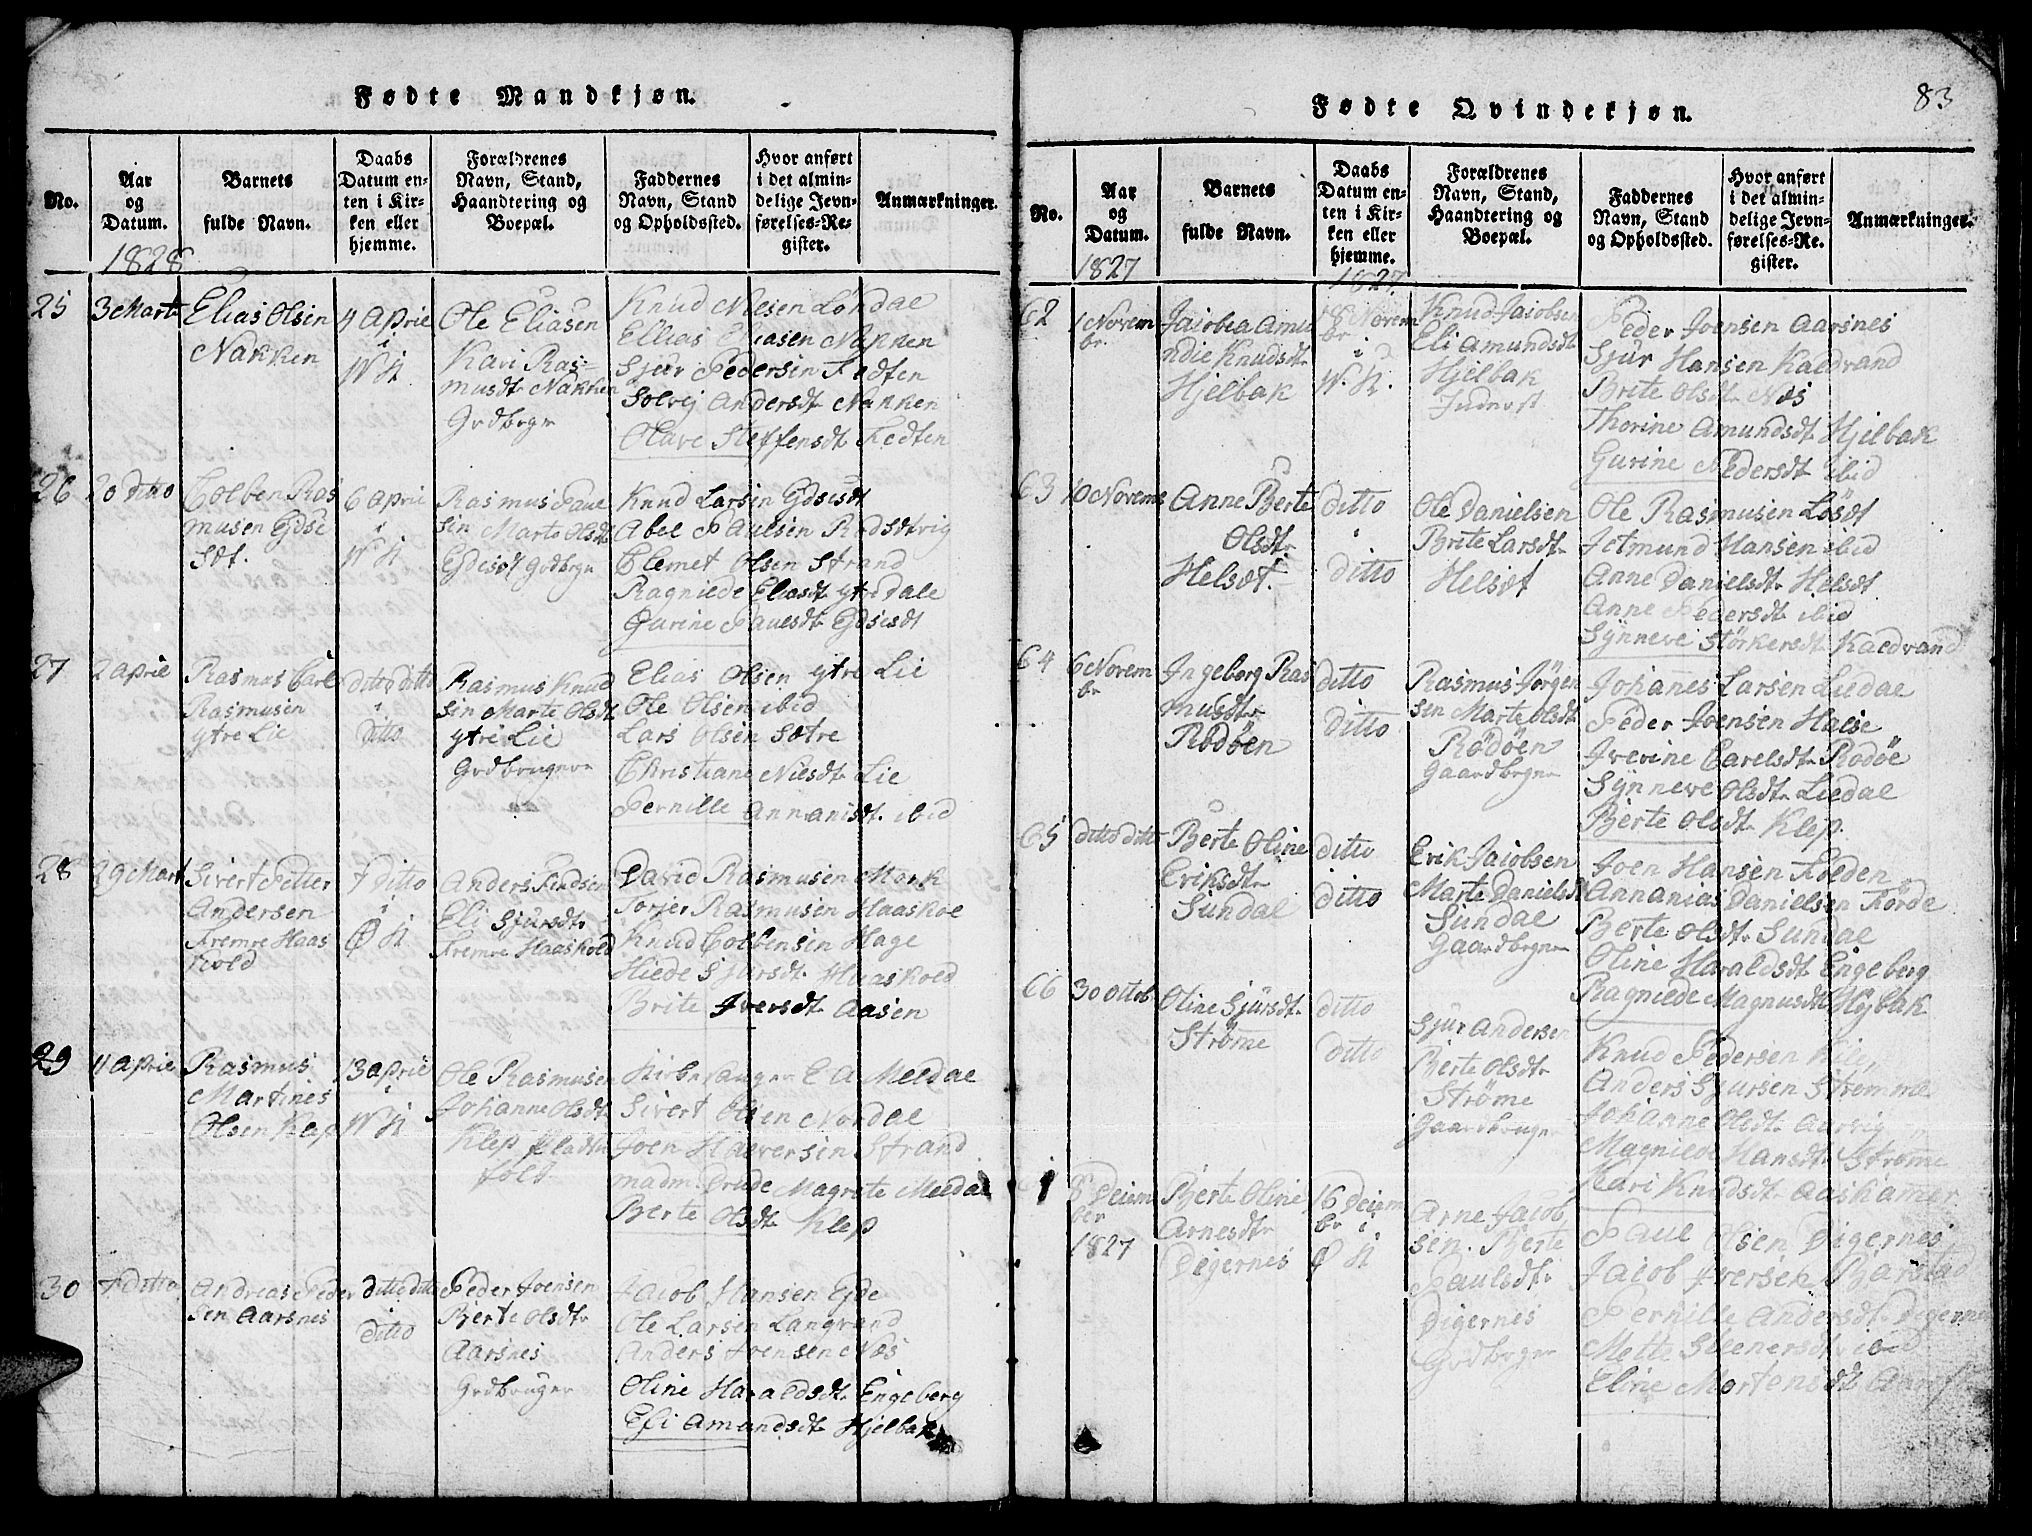 Fødte Mandkjøn.
No.
Aar
og
Datum.
Barnets
fulde Navn.
Daabs
Datum en-
ten i Kir-
ken eller
hjemme.
Forældrenes
Navn, Stand,
Haandtering og
Boepæl.
Faddernes
Navn, Stand
og Opholdssted.
Hvor anført
i det almin-
delige Jevn-
førelses-Re-
gister.
Anmærkninger.
1828
25
3 Marts
Elias Olsin
Nakken
4 April
i
W K
Ole Eliasen
Kari Ras-
musdt Nakken
Grdbrgr
Knud Nilsen Løndal
Ellias Eliasen Nakken
Sjur Pedersin Fedten
Solvej Andersdt Nakken
Olave Steffensdt Fedten
26
20 ditto
Colben Ras
musen Ejdse
Sæt.
6 April
i
W K
Rasmus Paul
sin Marte Olsdt
Ejdsæt Grdbrgr
Knud Larsin Ejdsæt
Abel Paulsen Rødsætvig
Clemet Olsen Strand
Ragnilde Eliasdt ytredale
Gurine Paulsdt Ejdsæt
27
2 April
Rasmus Carl
Rasmusen
ytre Lie
ditto ditto
i
ditto
Rasmus Knud
sin Marte Olsdt
ytre Lie
Grdbruger
Elias Olsen ytre Lie
Ole Olsen ibid
Lars Olsen Sætre
Christiane Nilsdt Lie
Pernille Annanisdt ibid
28
29 Mart
Sivert Petter
Andersen
Fremre Haas
kold
7 ditto
i
Ø K
Anders Findsen
Eli Sjursdt
Fremre Haaskold
David Rasmusen Mork
Torjer Rasmusen Haaskol
Knud Colbensin Hage
Hilde Sjursdt Haaskold
Brite Iversdt Aasen
29
11 April
Rasmus
Martines
Olsen Klep
13 April
i
W K
Ole Rasmusen
Johanne Olsdt
Klep Pladsn
folk
Kirkesanger E A Meldal
Sivert Olsen Nordal
Joen Halversin Strand
madm Drude Magrete Meldal
Berte Olsdt Klep
30
7 ditto
Andreas Peder
sen Aarsnes
ditto ditto
i
ditto
Peder Joensen
Berte Olsdt
Aarsnes
Grdbruger
Jacob Hansen Ejde
Ole Larsen Langvand
Anders Joensen Næs
Oline Haraldsdt Engeberg
Eli Amundsdt Hjelbak
83
Fødte Qvindekjøn.
No.
Aar
og
Datum.
Barnets
fulde Navn.
Daabs
Datum en-
ten i Kir-
ken eller
hjemme.
Forældrenes
Navn, Stand,
Haandtering og
Boepæl.
Faddernes
Navn, Stand
og Opholdssted.
Hvor anført
i det almin-
delige Jevn-
førelses-Re-
gister.
Anmærkninger.
1827
1827
62
1 Novem
br
Jacobea Amu
ndie Knudsdt
Hjelbak
18 Novem
br
i
W. K.
Knud Jacobsen
Eli Amundsdt
Hjelbak
Inderst
Peder Joensen Aarsnes
Sjur Hansen Kaldvand
Brite Olsdt Næs
Thorine Amundsdt Hjelbak
Gurine Pedersdt ibid
63
10 Novemb
Anne Berte
Olsdt
Helsæt
ditto
i
ditto
Ole Danielsen
Brite Larsdt
Helsæt
Ole Rasmusen Løsæt
Jetmund Hansen ibid
Anne Danielsdt Helsæt
Anne Pedersdt ibid
Synneve Størkersdt Kaldvand
64
6 Novem
br
Ingeborg Ras
musdt
Rødøen
ditto
ditto
Rasmus Jørgen
sin Marte Olsdt
Rødøen
Gaardbrgr
Johanes Larsen Liedal
Peder Joensen Halse
Iverine Carelsdt Rødøe
Synneve Olsdt Liedal
Berte Olsdt Klep
65
ditto ditto
Berte Oline
Eriksdt
Sundal
ditto
ditto
Erik Jacobsen
Marte Danielsdt
Sundal
Gaardbrgr
Joen Hansen Folden
Annanias Danielsen Førde
Berte Olsdt Sundal
Oline Haraldsdt Engeberg
Ragnilde Magnusdt Højbak
66
30 Octob
Oline Sjursdt
Strøme
ditto
ditto
Sjur Andersen
Berte Olsdt
Strøme
Gaardbruger
Knud Pedersen Lie
Anders Sjursen Strømme
Johanne Olsdt Aarvig
Magnilde Hansdt Strøme
Kari Knudsdt Aaskamer
8 Decem
ber
1827
Berte Oline
Arnesdt
Digernes
16 Decem
br i
Ø K
Arne Jacob
sen. Berte
Paulsdt
Digernes
Grdbrger
Paul Olsen Digernes
Jacob Iversen Barstad
Pernille Andersdt Digernes
Mette Steenersdt ibid
Eline Mortensdt